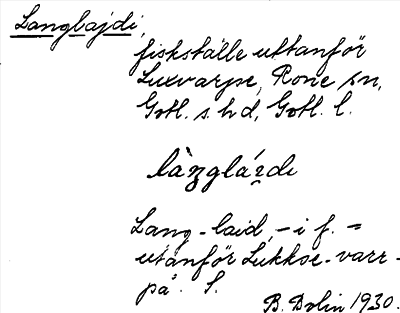 Langlajdi,
fiskställe uttanför
Luxvarpe, Rone sn,
Gotl. s. hd, Gotl. l.
làŋglá́rdı
Lang-laid, - i f. =
utanför Lukkse-varr-
på. S.
B. Dolin 1930.